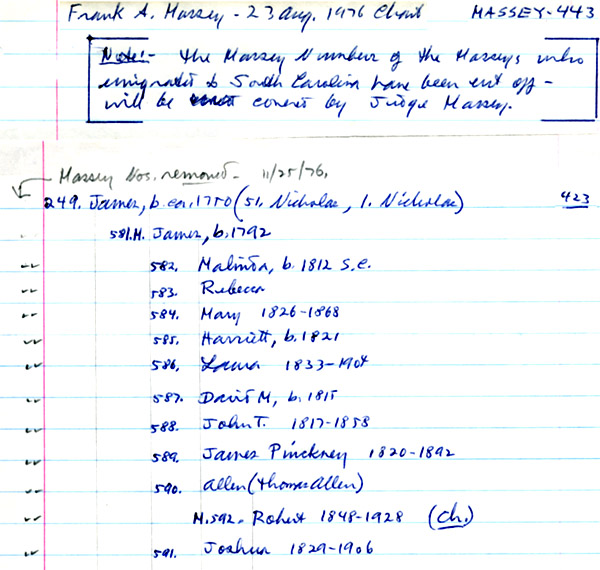 Frank A. Massey - 23 Aug. 1976 Chart MASSEY-443
Note:- The Massey Numbers of the Masseys who
emigrated to South Carolina have been cut off -
will be covered by Judge Massey.
Massey Nos. removed - 11/25/76.
249. James, b. ca. 1750 (51. Nicholas, 1. Nicholas) 423
581.M. James, b. 1792
582. Malinda, b. 1812 S.C.
583. Rebecca
584. Mary 1826-1868
585. Harriett, b. 1821
586. Laura 1833-1904
587. David M, b. 1815
588. John T. 1817-1858
589. James Pinckney 1820-1892
590. Allen (Thomas Allen)
M.592. Robert 1848-1928 (Ch.)
591. Joshua 1829-1906